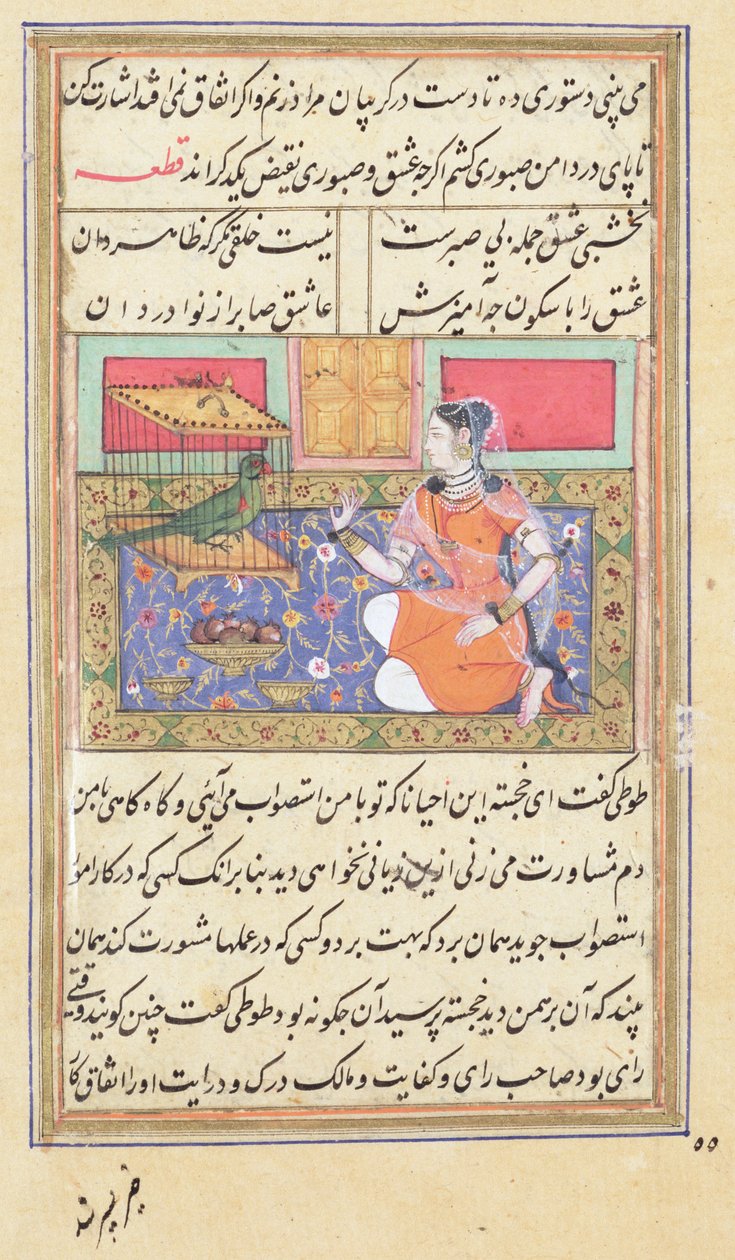 می بینی دستوری ده تا دست در کریبان مراد زنم و اکر اتفاق نمی افتد اشارت کن
تا پای در دامن صبوری کشم اکرچه عشق و صبوری نقیض یکدکراند قطعه
نخشبی عشق جمله بی صبرست نیست خلقی مکر که ظاهر دان
عشق را با سکون چه آمیزش عاشق صابر از نوادر دان
طوطی کفت ای خجسته این احیانا که تو با من استصواب می آیئی و کاه کاهی با من
دم مشاورت می زنی ازین زیانی نخواهی دید بنا برانک کسی که در کارها
استصواب جوید همان برد که بهت برد و کسی که در عملها مشورت کند همان
بیند که آن برهمن دید خجسته پرسید آن چکونه بود طوطی کفت چنین کویند وقتی
رای بود صاحب رای و کفایت و مالک درک و درایت او را اتفاق کار
۵۵